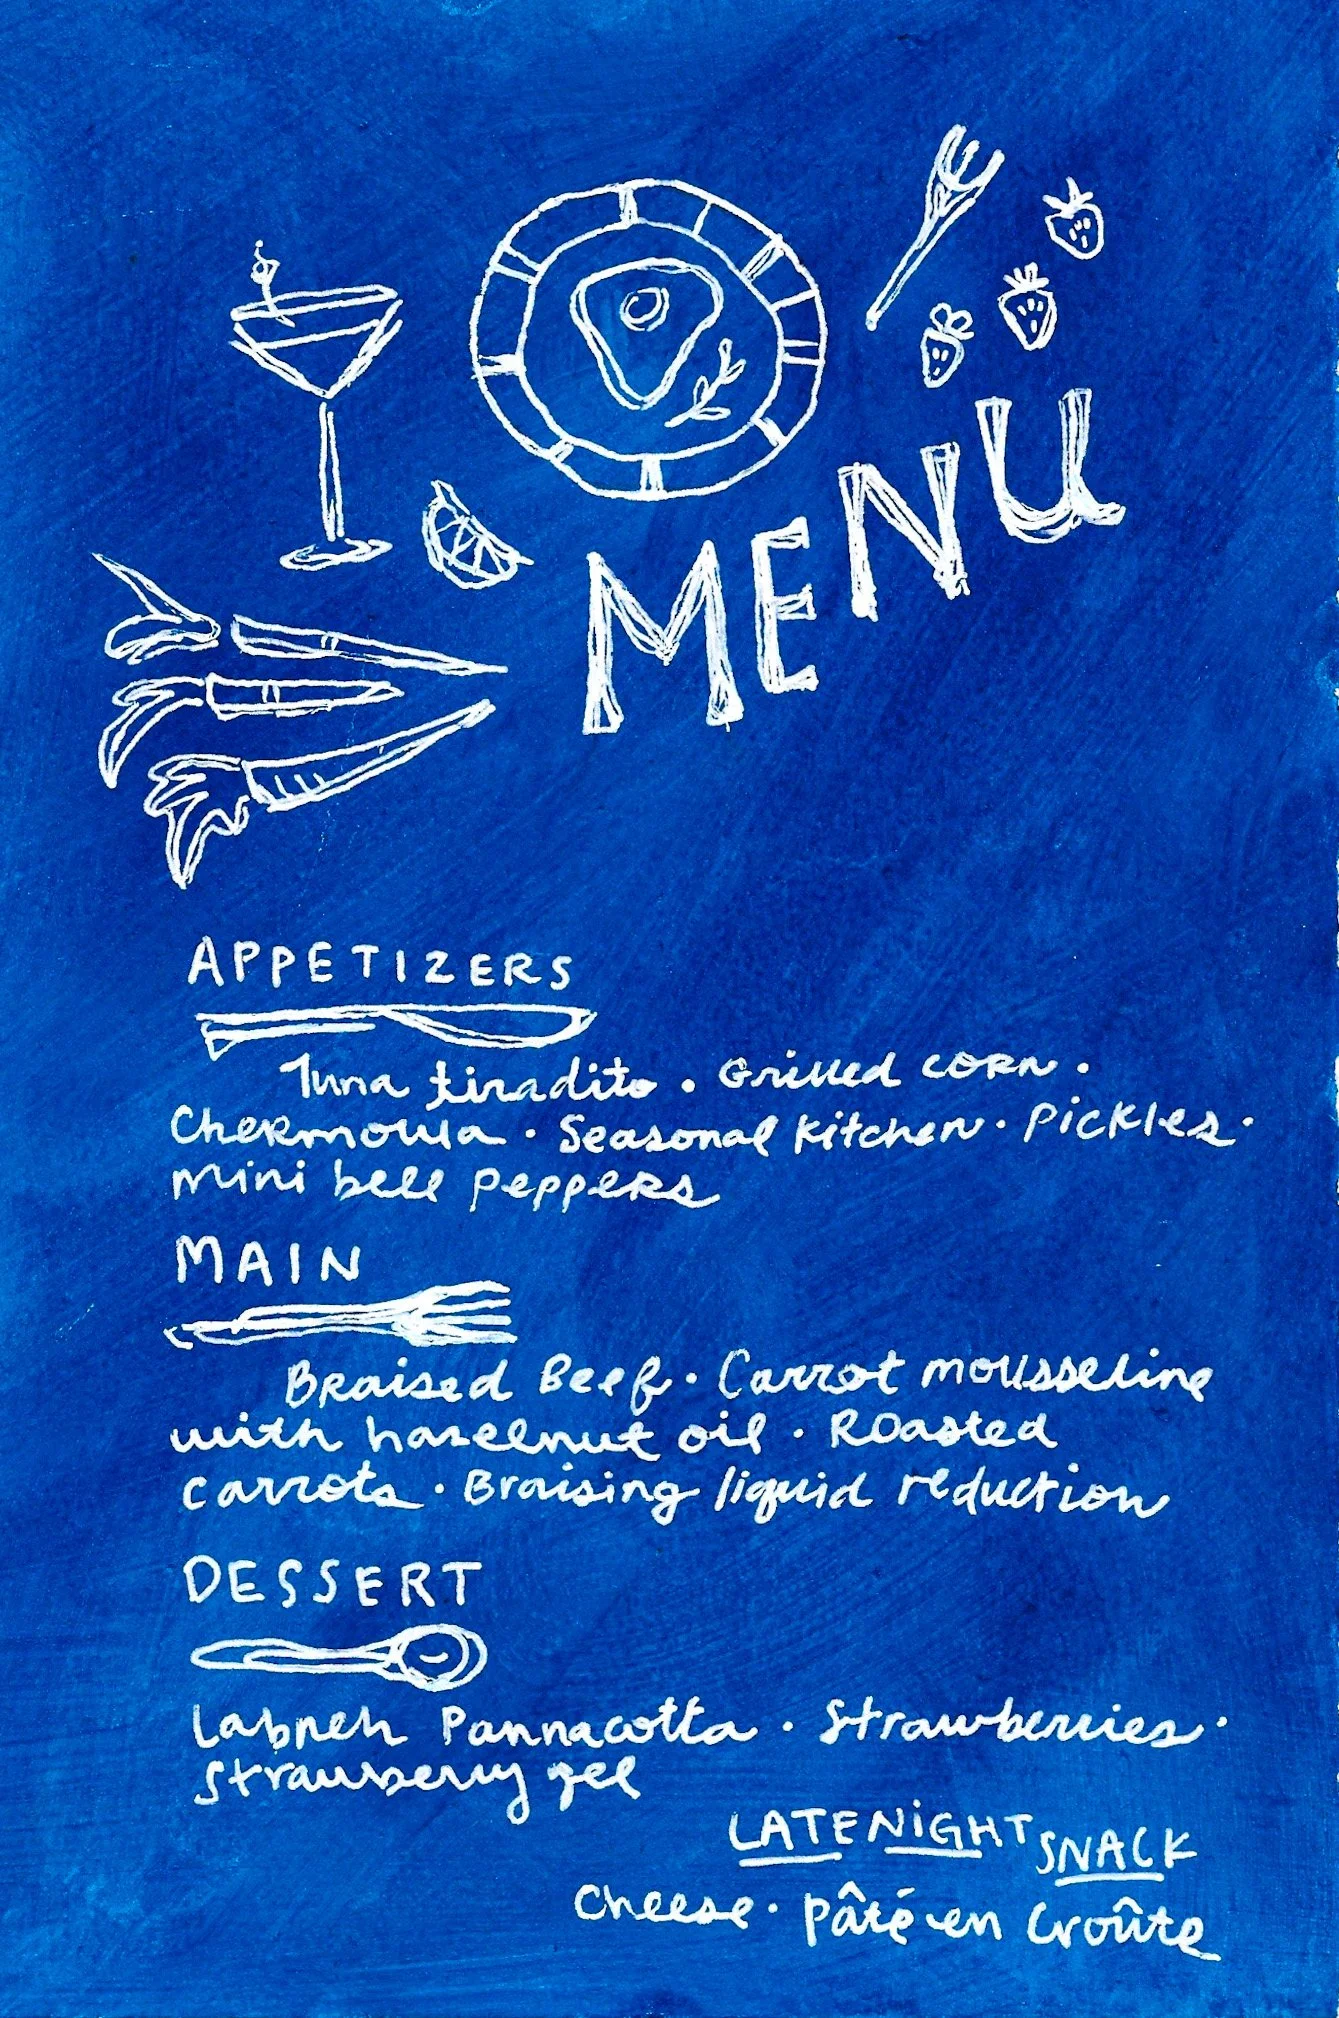 MENU
APPETIZERS
Tuna tiradito · Grilled corn ·
Chermoula · Seasonal kitchen · Pickles ·
Mini bell peppers
MAIN
Braised Beef · Carrot mousseline
with hazelnut oil · Roasted
carrots · Braising liquid reduction
DESSERT
Labneh Pannacotta · Strawberries ·
Strawberry gel
LATE NIGHT SNACK
Cheese · pâté en croûte